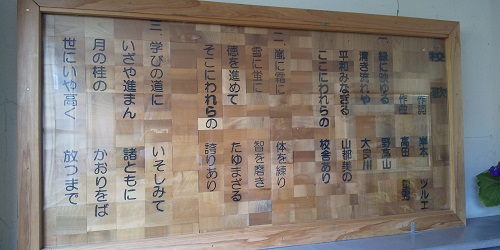 校歌
作詞 岸本 ツルエ
作曲 高田
一 緑に映ゆる 野高山
清き流れや 大良川
平和みなぎる 山都美の
ここにわれらの 校舎あり
二 嵐に霜に 体を練り
雪に蛍に 智を磨き
徳を進めて たゆまざる
そこにわれらの 誇りあり
三 学びの道に いそしみて
いざや進まん 諸ともに
月の桂の かおりをば
世にいや高く 放つまで